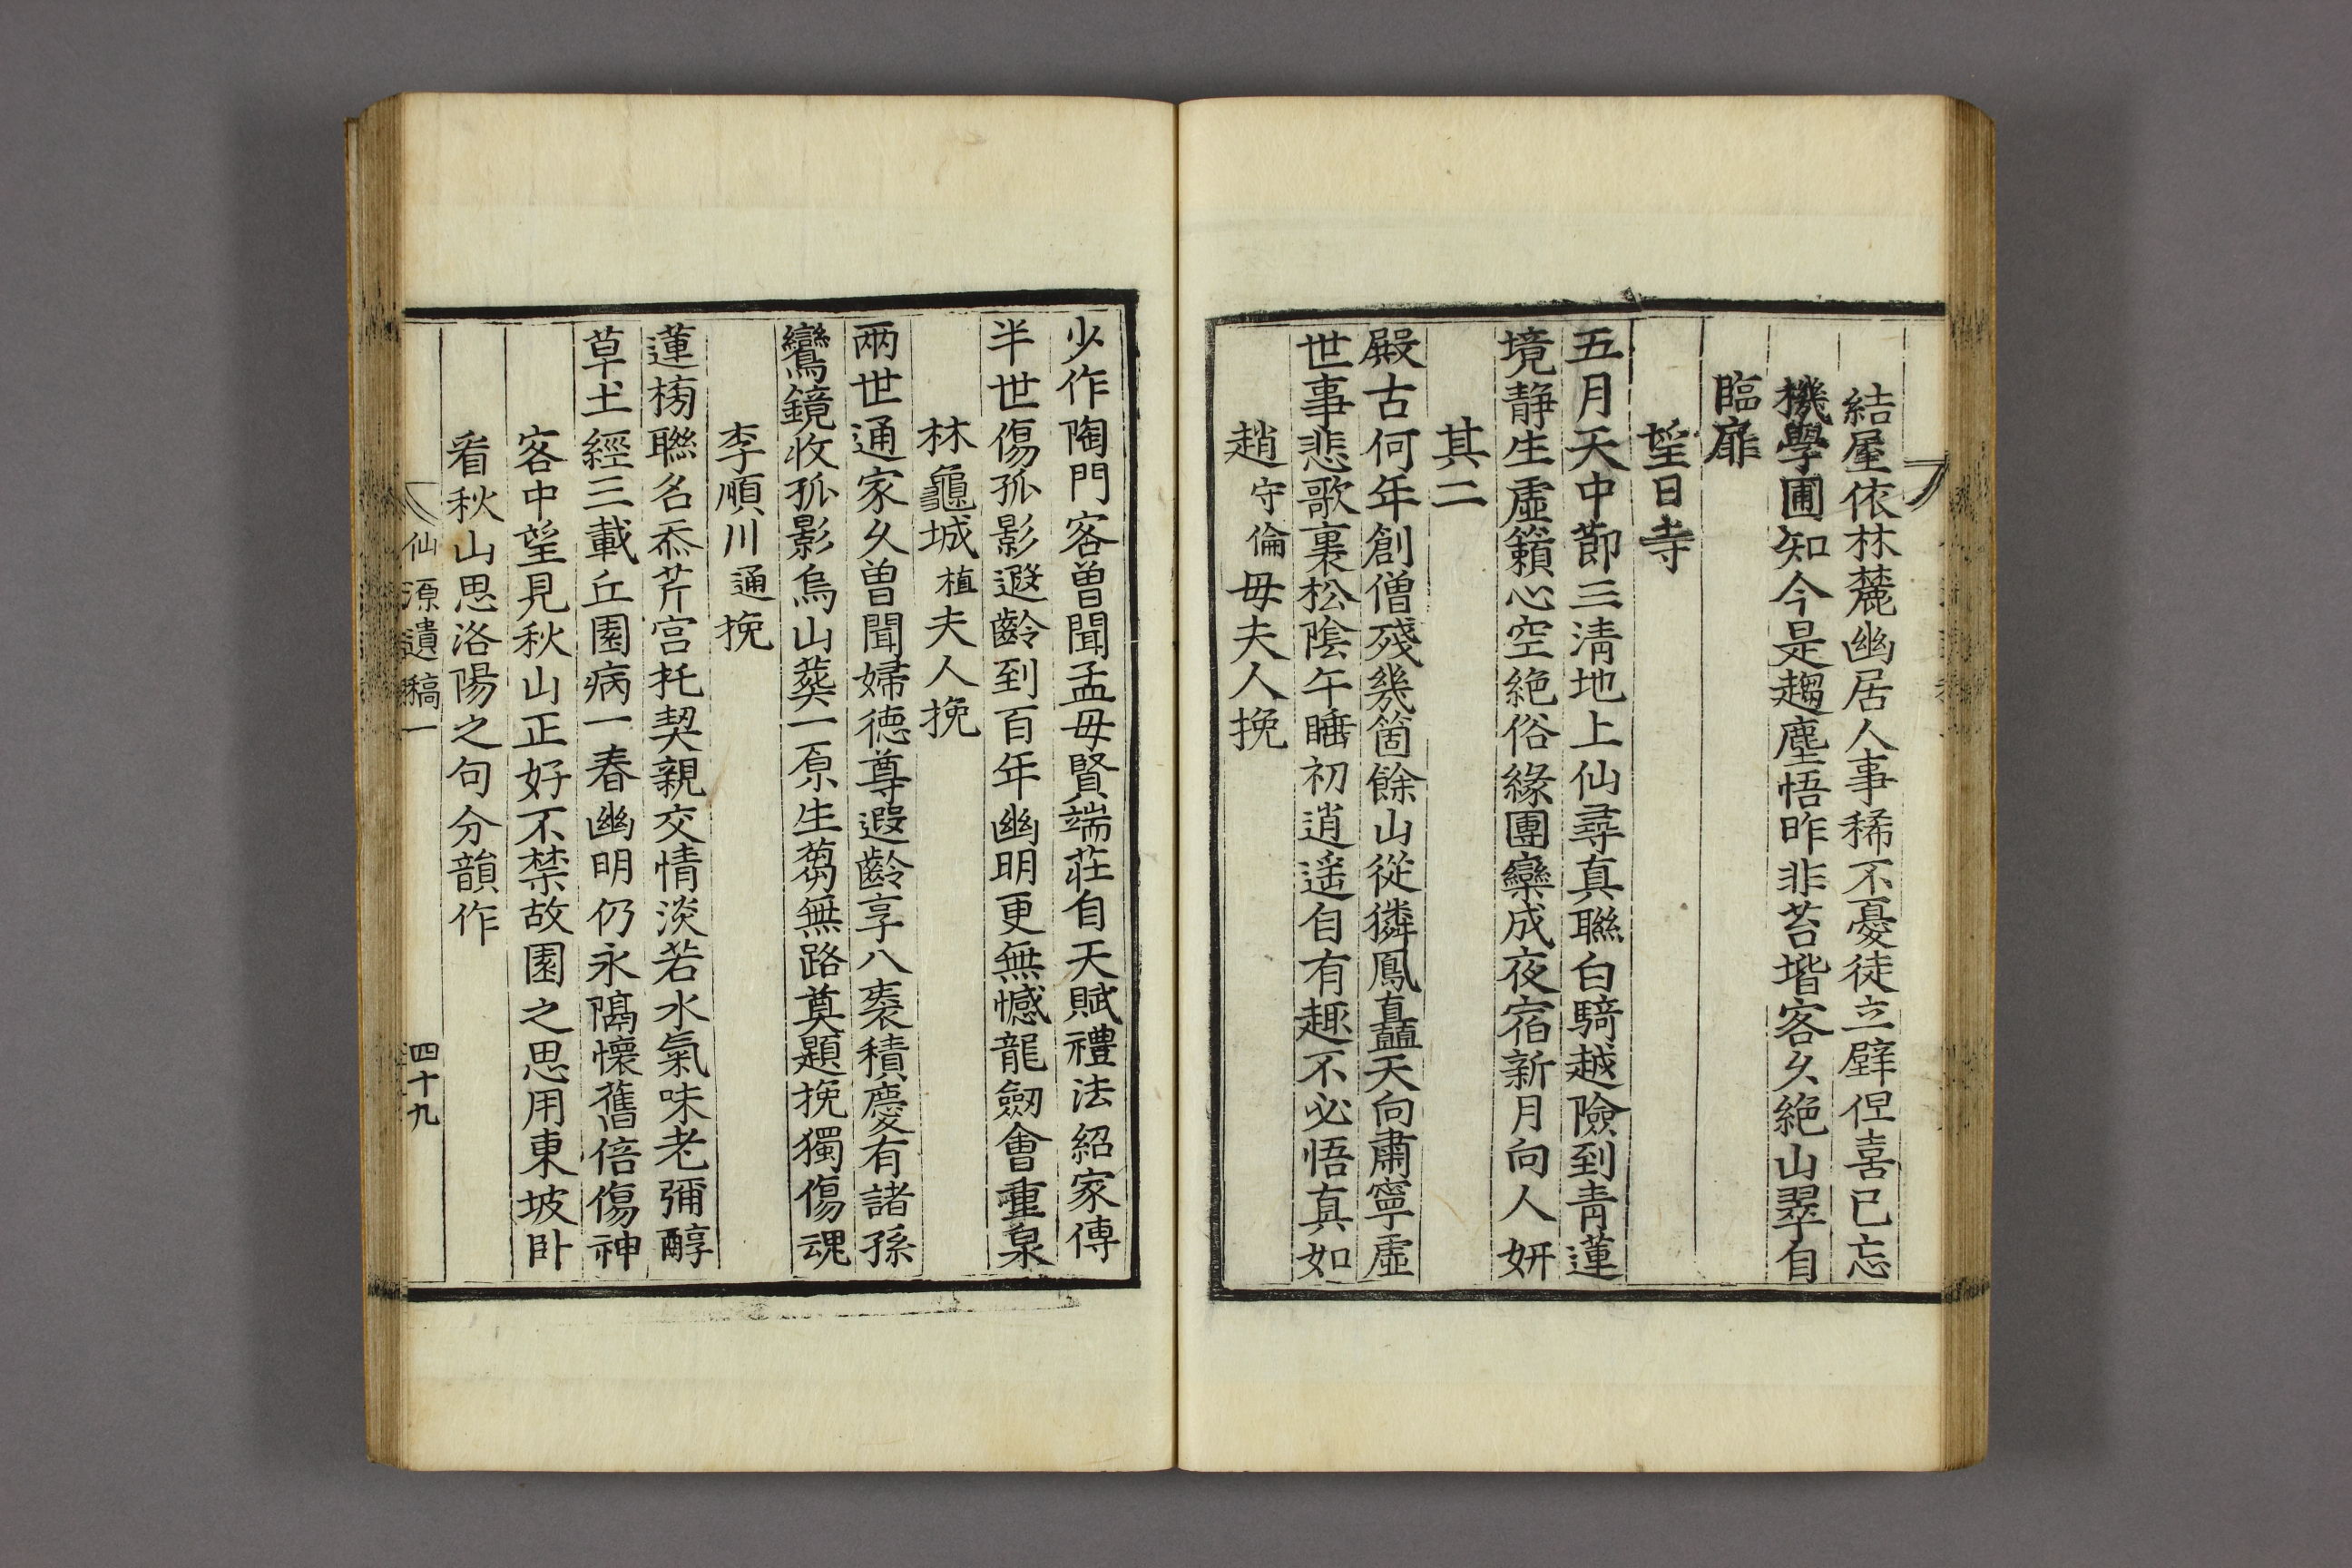 結屋依林麓幽居人事稀不憂徒立壁但喜已忘
機學圃知今是趨塵悟昨非苔堦客久絶山翠自
臨扉
望日寺
五月天中節三淸地上仙尋真聯白騎越險到青蓮
境静生虛籟心空絶俗緣團欒成夜宿新月向人妍
其二
殿古何年創僧殘幾箇餘山從獜鳳直矗天向肅寧虛
世事悲歌裏松陰午睡初逍遥自有趣不必悟真如
趙守倫母夫人挽
少作陶門客曽聞孟母賢端莊自天賦禮法紹家傳
半世傷孤影遐齡到百年幽明更無憾龍劒會重泉
林龜城植夫人挽
兩世通家久曽聞婦德尊遐齡享八袠積慶有諸孫
鸞鏡收孤影烏山葬一原生蒭無路奠題挽獨傷魂
李順川通挽
蓮榜聯名忝芹宮托契親交情淡若水氣味老彌醇
草土經三載丘園病一春幽明仍永隔懷舊倍傷神
客中望見秋山正好不禁故園之思用東坡卧
看秋山思洛陽之句分韻作
仙源遺稿一
四十九